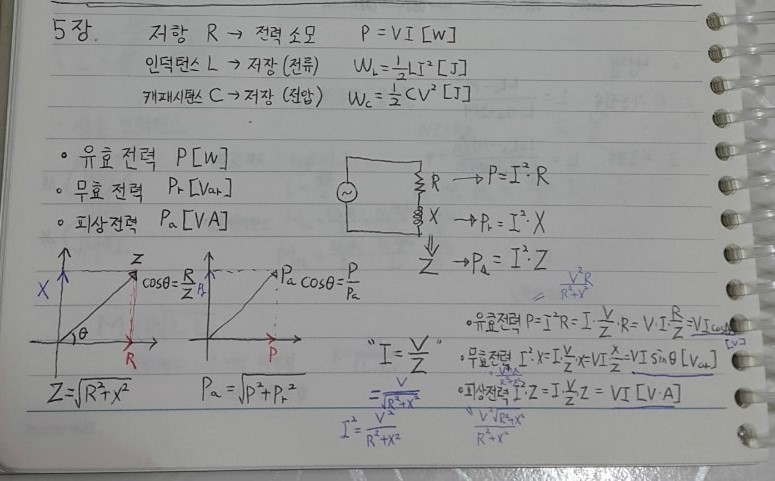 5장. 저항 R → 전력소모 P = VI [W]
인덕턴스 L → 저장 (전류) W_L = ½LI² [J]
캐패시턴스 C → 저장 (전압) W_C = ½CV² [J]
• 유효전력 P[W]
• 무효전력 Pr[Var]
• 피상전력 Pa[VA]
R → P = I²·R
X → Pr = I²·X
Z → Pa = I²·Z
X Z θ R
cosθ = R/Z
Z = √(R²+X²)
Pr Pa P
cosθ = P/Pa
Pa = √(P²+Pr²)
"I = V/Z"
= V/√(R²+X²)
I² = V²/(R²+X²)
= V²R/(R²+X²)
• 유효전력 P = I²R = I·V/Z·R = V·I·R/Z = VI cosθ
• 무효전력 I²·X = I·V/Z·X = VI X/Z = VI sinθ [Var]
• 피상전력 I²·Z = I·V/Z·Z = VI [V·A]
V²√(R²+X²)/(R²+X²)